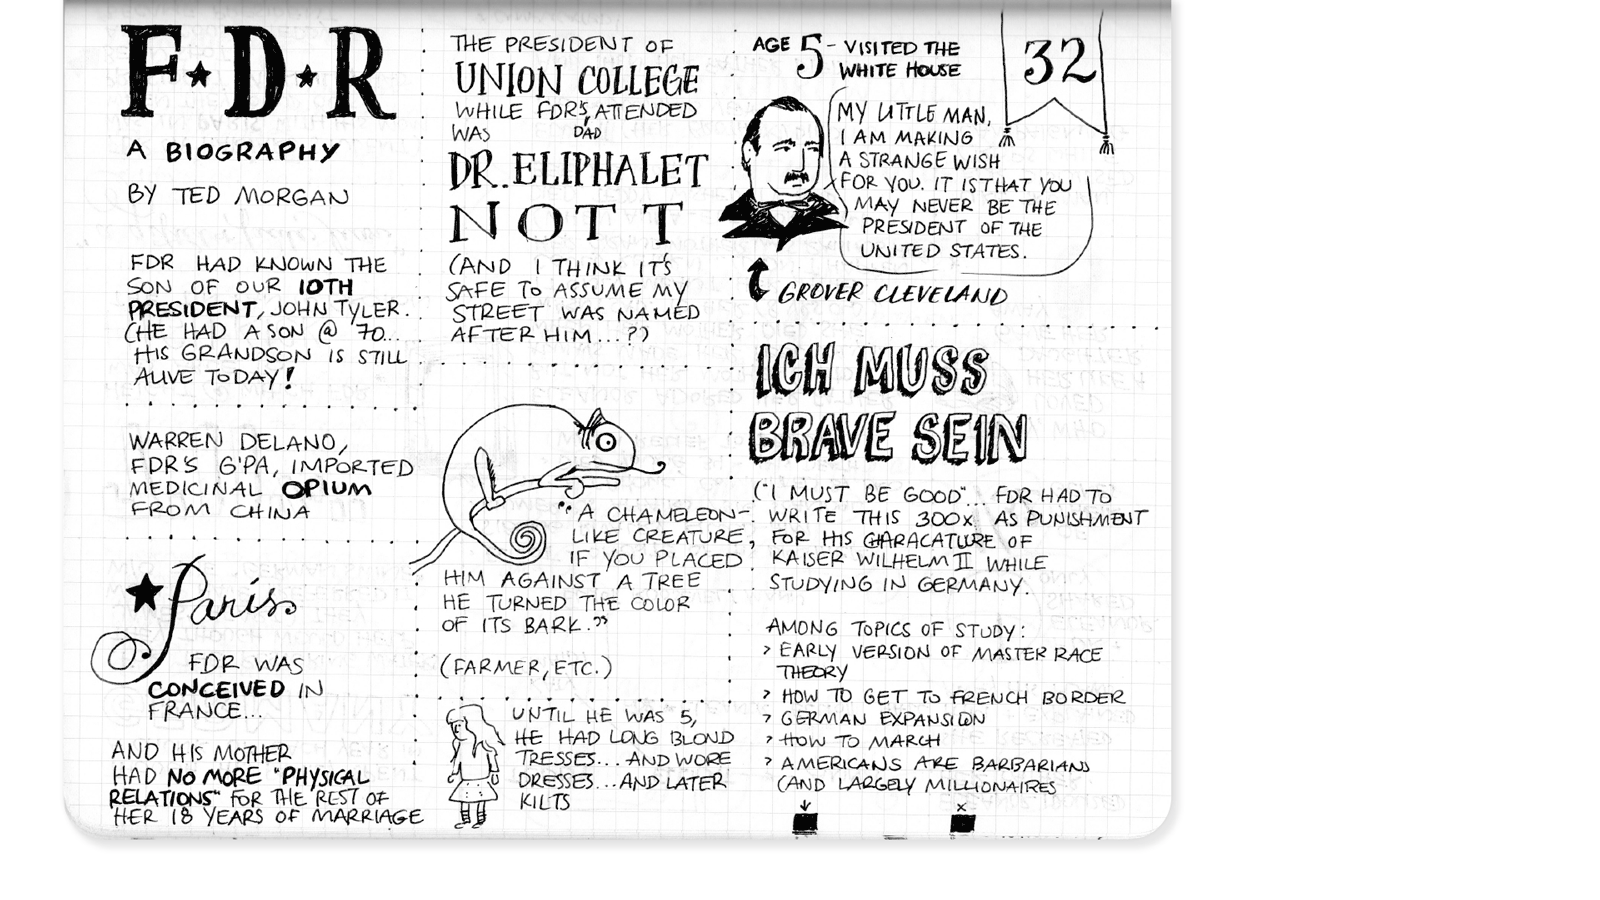 F★D★R
A BIOGRAPHY
BY TED MORGAN
FDR HAD KNOWN THE
SON OF OUR 10TH
PRESIDENT, JOHN TYLER.
(HE HAD A SON @ 70...
HIS GRANDSON IS STILL
ALIVE TODAY!
WARREN DELANO,
FDR'S G'PA, IMPORTED
MEDICINAL OPIUM
FROM CHINA
★ Paris
FDR WAS
CONCEIVED IN
FRANCE...
AND HIS MOTHER
HAD NO MORE "PHYSICAL
RELATIONS" FOR THE REST OF
HER 18 YEARS OF MARRIAGE
THE PRESIDENT OF
UNION COLLEGE
WHILE FDR'S ATTENDED
WAS DAD
DR. ELIPHALET
NOTT
(AND I THINK IT'S
SAFE TO ASSUME MY
STREET WAS NAMED
AFTER HIM...?)
"A CHAMELEON-
LIKE CREATURE,
IF YOU PLACED
HIM AGAINST A TREE
HE TURNED THE COLOR
OF ITS BARK."
(FARMER, ETC.)
UNTIL HE WAS 5,
HE HAD LONG BLOND
TRESSES... AND WORE
DRESSES... AND LATER
KILTS
AGE 5 - VISITED THE
WHITE HOUSE
32
MY LITTLE MAN,
I AM MAKING
A STRANGE WISH
FOR YOU. IT IS THAT YOU
MAY NEVER BE THE
PRESIDENT OF THE
UNITED STATES.
GROVER CLEVELAND
ICH MUSS
BRAVE SEIN
("I MUST BE GOOD"... FDR HAD TO
WRITE THIS 300x AS PUNISHMENT
FOR HIS CHARACATURE OF
KAISER WILHELM II WHILE
STUDYING IN GERMANY.
AMONG TOPICS OF STUDY:
> EARLY VERSION OF MASTER RACE
THEORY
> HOW TO GET TO FRENCH BORDER
> GERMAN EXPANSION
> HOW TO MARCH
> AMERICANS ARE BARBARIANS
(AND LARGELY MILLIONAIRES